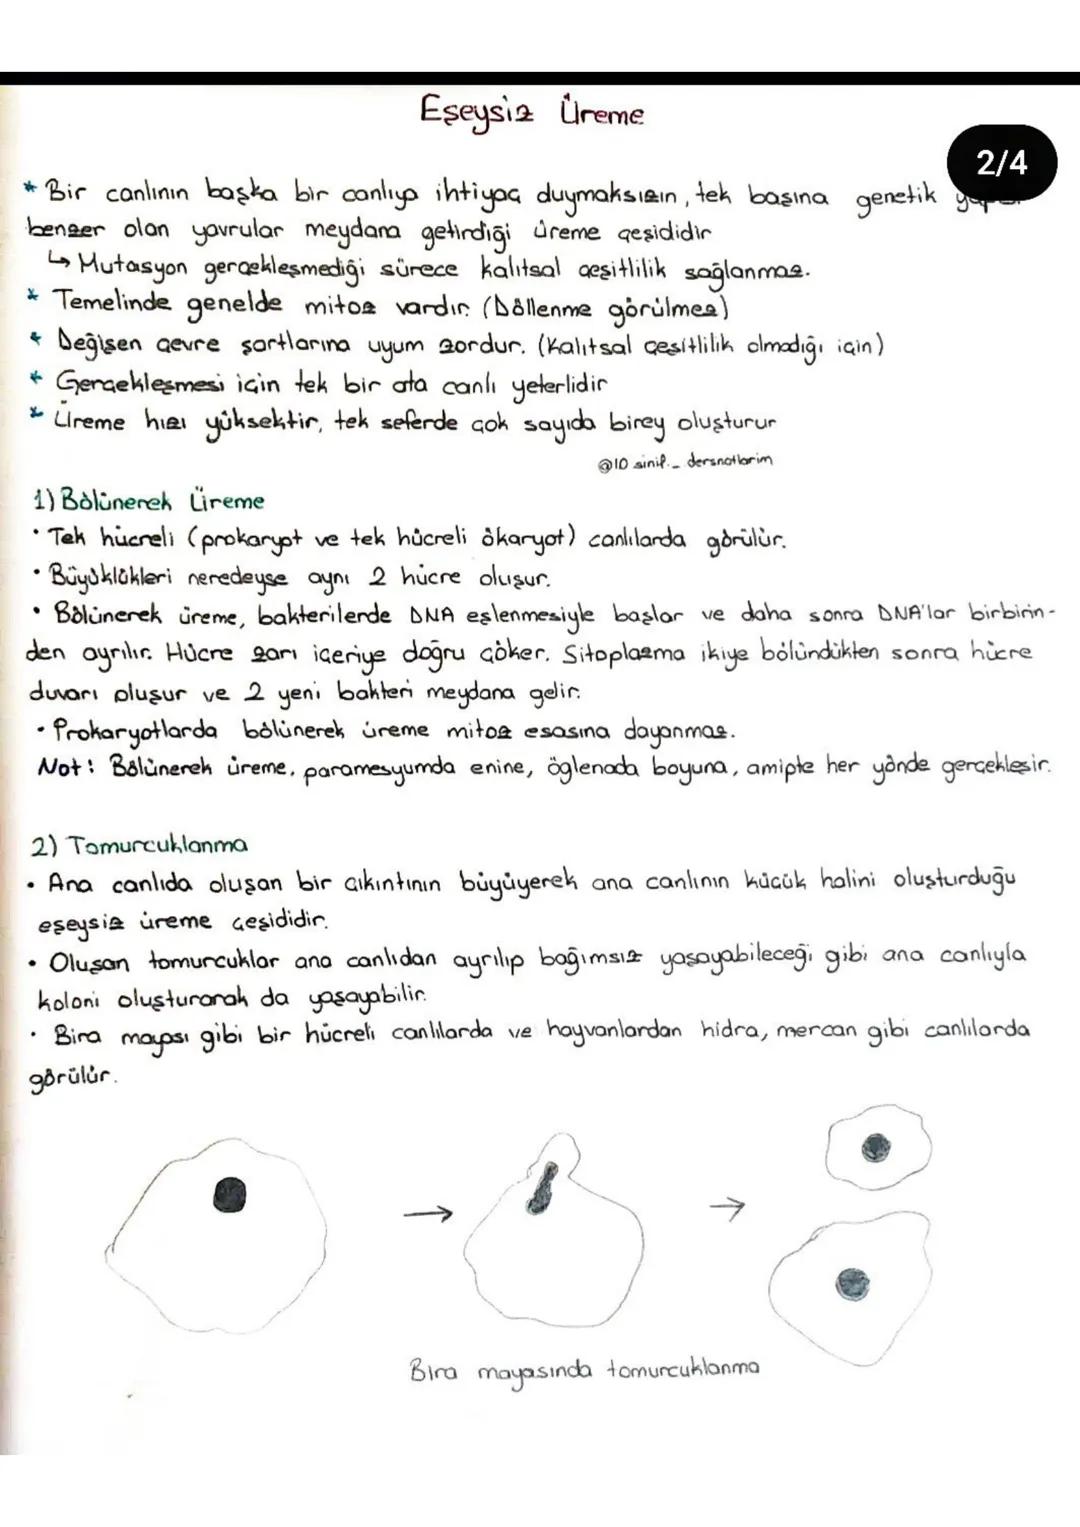 Eşeysiz Üreme
2/4
* Bir canlının başka bir canlıya ihtiyaç duymaksızın, tek başına genetik
benzer olan yavrular meydana getirdiği üreme çeşididir
↳ Mutasyon gerçekleşmediği sürece kalıtsal çeşitlilik sağlanmaz.
* Temelinde genelde mitoz vardır. (Döllenme görülmez)
* Değişen çevre şartlarına uyum zordur. (Kalıtsal çeşitlilik olmadığı için)
* Gerçekleşmesi için tek bir ata canlı yeterlidir
* Üreme hızı yüksektir, tek seferde çok sayıda birey oluşturur
@10.sinif._dersnotlarim
1) Bölünerek Üreme
• Tek hücreli (prokaryot ve tek hücreli ökaryot) canlılarda görülür.
• Büyüklükleri neredeyse aynı 2 hücre oluşur.
• Bölünerek üreme, bakterilerde DNA eşlenmesiyle başlar ve daha sonra DNA'lar birbirin-
den ayrılır. Hücre zarı içeriye doğru çöker. Sitoplazma ikiye bölündükten sonra hücre
duvarı oluşur ve 2 yeni bakteri meydana gelir.
• Prokaryotlarda bölünerek üreme mitoz esasına dayanmaz.
Not: Bölünerek üreme, paramesyumda enine, öglenada boyuna, amipte her yönde gerçekleşir.
2) Tomurcuklanma
• Ana canlıda oluşan bir çıkıntının büyüyerek ana canlının küçük halini oluşturduğu
eşeysiz üreme çeşididir.
• Oluşan tomurcuklar ana canlıdan ayrılıp bağımsız yaşayabileceği gibi ana canlıyla
koloni oluşturarak da yaşayabilir.
• Bira mayası gibi bir hücreli canlılarda ve hayvanlardan hidra, mercan gibi canlılarda
görülür.
Bira mayasında tomurcuklanma